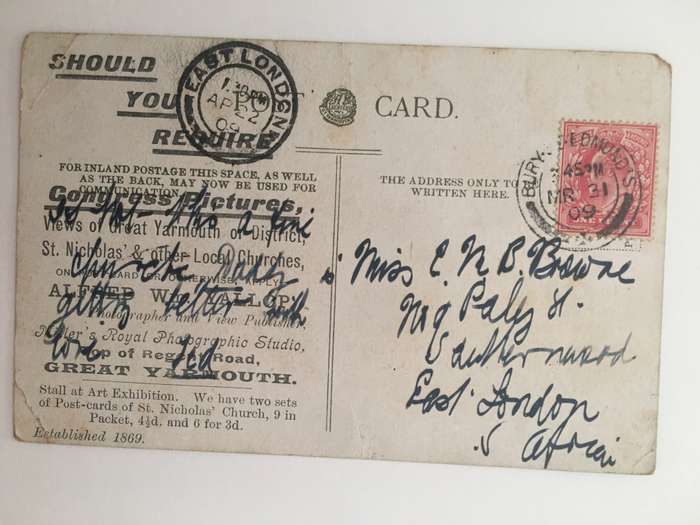 SHOULD
YOU
REQUIRE
FOR INLAND POSTAGE THIS SPACE, AS WELL
AS THE BACK, MAY NOW BE USED FOR
COMMUNICATION.
Congress Pictures,
Views of Great Yarmouth or District,
St. Nicholas' & other Local Churches,
ALFRED W. YALLOP,
Photographer and View Publisher,
Royal Photographic Studio,
Top of Regent Road,
GREAT YARMOUTH.
Stall at Art Exhibition. We have two sets
of Post-cards of St. Nicholas' Church, 9 in
Packet, 4½d. and 6 for 3d.
Established 1869.
is a fine
getting better with
love
EAST LONDON
1.30 PM
AP 22
09
CARD.
THE ADDRESS ONLY TO
WRITTEN HERE.
BURY ST EDMUNDS
45 PM
MR 31
09
Miss E. N. B. Browne
St.
East London
S Africa